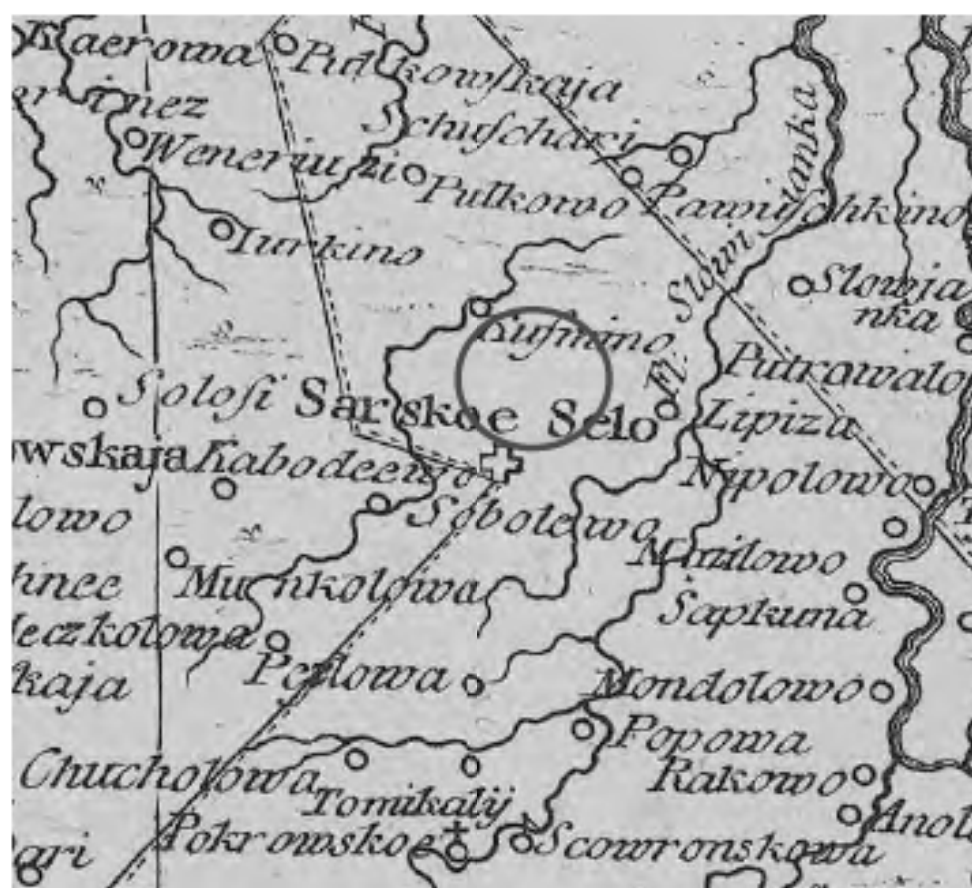 Kaerowa
Pulkowskaja
Schuschari
Weneriuszi
Pulkowo
Pawuschkino
Turkino
Fl. Slowijanka
Slowja
nka
Kusmino
Putrowalo
Solosi
Sarskoe Selo
Lipiza
owskaja
Kabodeewo
Nipolowo
lowo
Sobolewo
Minilowo
hnee
Munkolowa
Sapkuna
eczkolowja
kaja
Pellowa
Mondolowo
Popowa
Chucholowa
Rakowo
Tomikalij
Anol
Pokrowskoe
Scowronskowa
ari